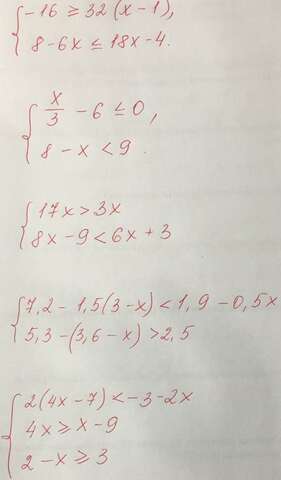 -16 ≥ 32(x-1),
8-6x ≤ 18x-4.
x/3 - 6 ≤ 0,
8 - x < 9.
17x > 3x
8x - 9 < 6x + 3
7,2 - 1,5(3-x) < 1,9 - 0,5x
5,3 - (3,6 - x) > 2,5
2(4x-7) < -3-2x
4x ≥ x - 9
2 - x ≥ 3